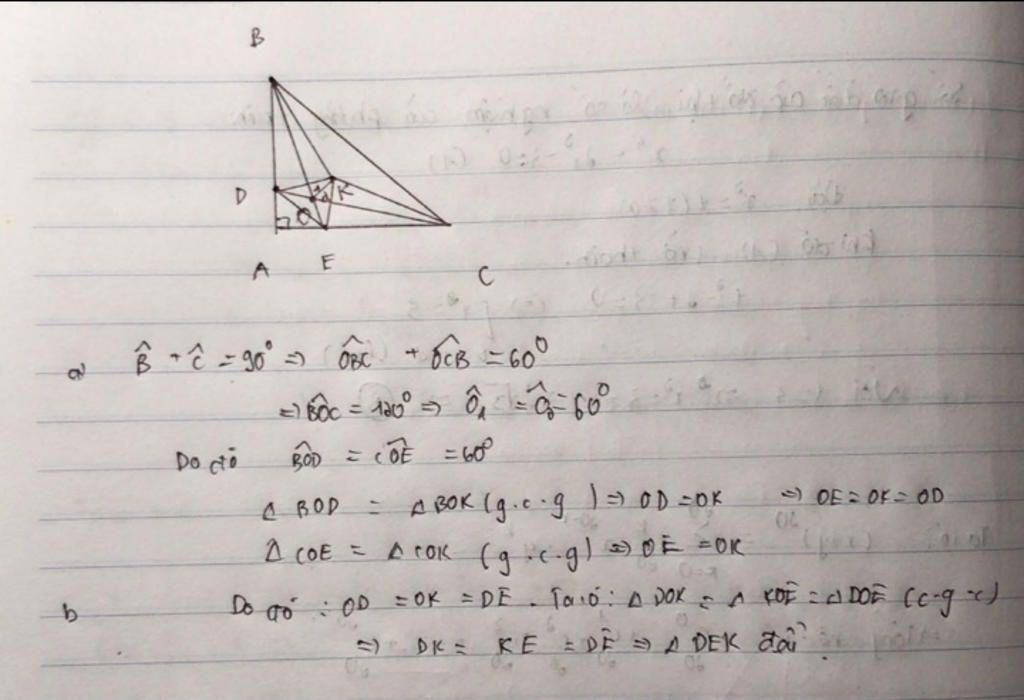 B
D
K
O
A
E
C
a) B̂ + Ĉ = 90° ⇒ OBC + OCB = 60°
⇒ BOC = 120° ⇒ Ô₁ = Ô₂ = 60°
Do đó BOD = COE = 60°
Δ BOD = Δ BOK (g.c.g) ⇒ OD = OK ⇒ OE = OK = OD
Δ COE = Δ COK (g.c.g) ⇒ OE = OK
b Do đó : OD = OK = DE . Ta có : Δ DOK = Δ KOE = Δ DOE (c-g-c)
⇒ DK = KE = DE ⇒ Δ DEK đều